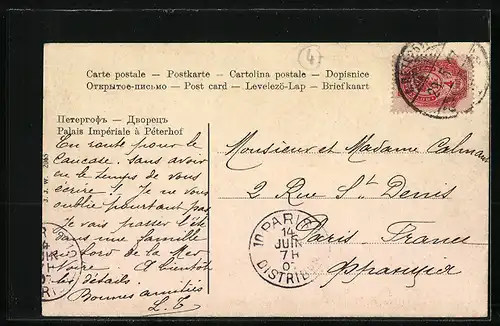 4
Carte postale — Postkarte — Cartolina postale — Dopisnice
Открытое-письмо — Post card — Levelező-Lap — Briefkaart
Петергофъ — Дворецъ
Palais Impériale à Péterhof
En route pour le
Caucase. Sans avoir
eu le temps de vous
écrire! Je ne vous
oublie pourtant pas
Je vais passer l'été
dans une famille
au bord de la Mer
Noire. A bientôt
les détails.
Bonnes amitiés
L. T.
J. J. W.
Monsieur et Madame Calmans
2 Rue St Denis
Paris France
Франція
10 PARIS
14
JUIN
7 H
0
DISTRIB